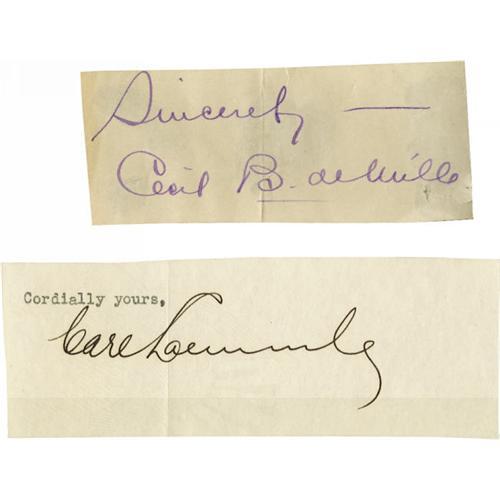 Sincerely —
Cecil B. deMille
Cordially yours,
Carl Laemmle